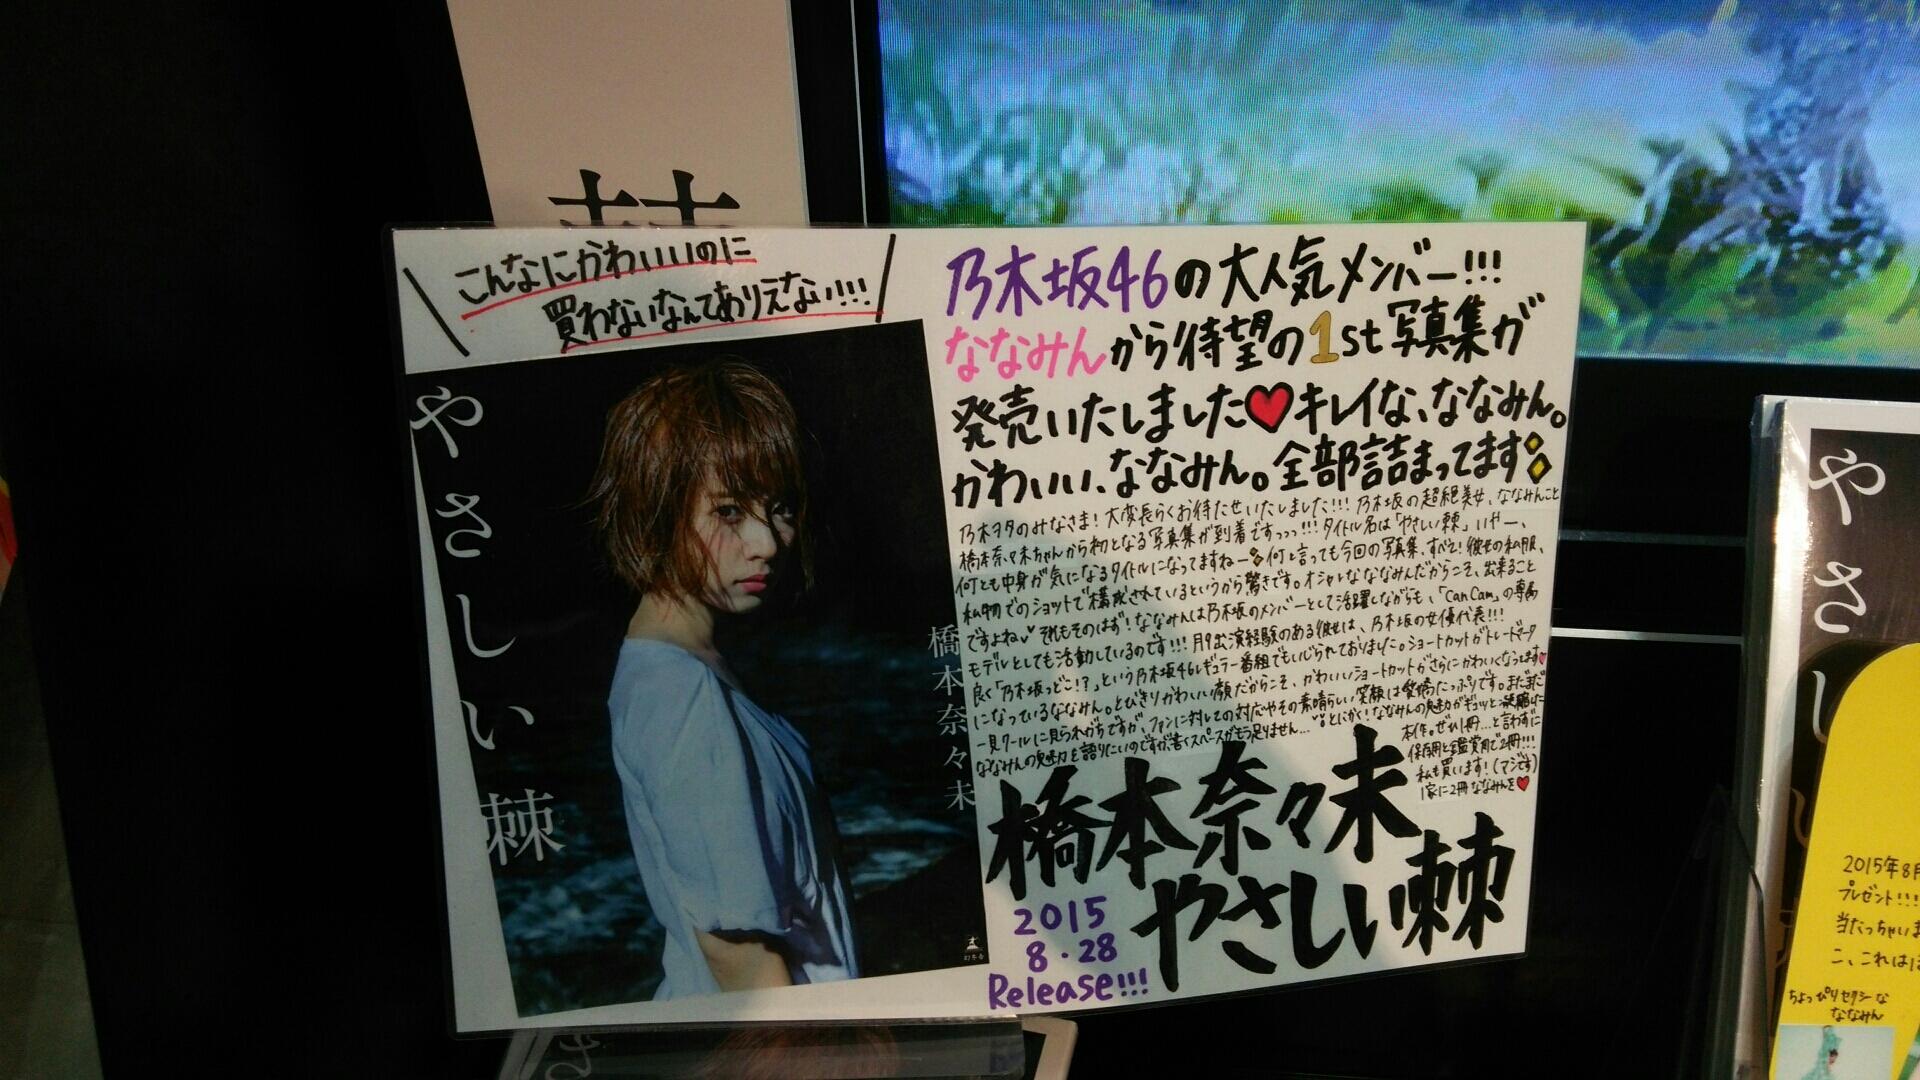 こんなにかわいいのに
買わないなんてありえない!!!
やさしい棘
橋本奈々未
幻冬舎
乃木坂46の大人気メンバー!!!
ななみんから待望の1st写真集が
発売いたしました♥キレイな、ななみん。
かわいい、ななみん。全部詰まってます
乃木ヲタのみなさま!大変長らくお待たせいたしました!!!乃木坂の超絶美女、ななみんこと
橋本奈々未ちゃんから初となる写真集が到着ですっっっ!!!タイトル名は「やさしい棘」いやー、
何とも中身が気になるタイトルになってますねー何と言っても今回の写真集、すべて!彼女の私服、
私物でのショットで構成されているというから驚きです。オシャレなななみんだからこそ、出来ること
ですよね それもそのはず!ななみんは乃木坂のメンバーとして活躍しながらも、「CanCam」の専属
モデルとしても活動しているのです!!!月9出演経験のある彼女は、乃木坂の女優代表!!!
良く「乃木坂って、どこ!?」という乃木坂46レギュラー番組でもいじられておりました。ショートカットがトレードマーク
になっているななみん。とびきりかわいい顔だからこそ、かわいいショートカットがさらにかわいくなってます♥
一見クールに見られがちですが、ファンに対しての対応やその素晴らしい笑顔は愛嬌たっぷりです。まだまだ
ななみんの魅力を語りたいのですが、書くスペースがもう足りません…とにかく!ななみんの魅力がギュッと凝縮した
本作。ぜひ1冊…と言わずに
保存用と鑑賞用で2冊!!!
私も買います!(マジです)
1家に2冊ななみんを♥
橋本奈々未
やさしい棘
2015
8・28
Release!!!
やさし
2015年8月
プレゼント!!!
当たっちゃいま
こ、これはほ
ちょっぴりセクシーな
ななみん